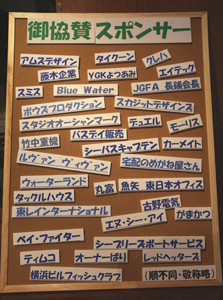 御協賛スポンサー
アムズデザイン タイクーン クレハ
藤本企業 YGKよつあみ エイテック
スミス Blue Water JGFA 長議会長
ボウズプロダクション スカジットデザインズ
スタジオオーシャンマーク デュエル モーリス
竹中重機 バスデイ販売
シーバスキャプテン カーメイト
ルヴァン ヴィヴァン 宅配のめがね屋さん
ウォーターランド
タックルハウス 丸富 魚矢 東日本オフィス
東レインターナショナル 古野電気
エヌ・シー・アイ がまかつ
ベイ・ファイター
シープリースポートサービス
ティムコ オーナーばり レッドヘッターズ
横浜ビルフィッシュクラブ (順不同・敬称略)